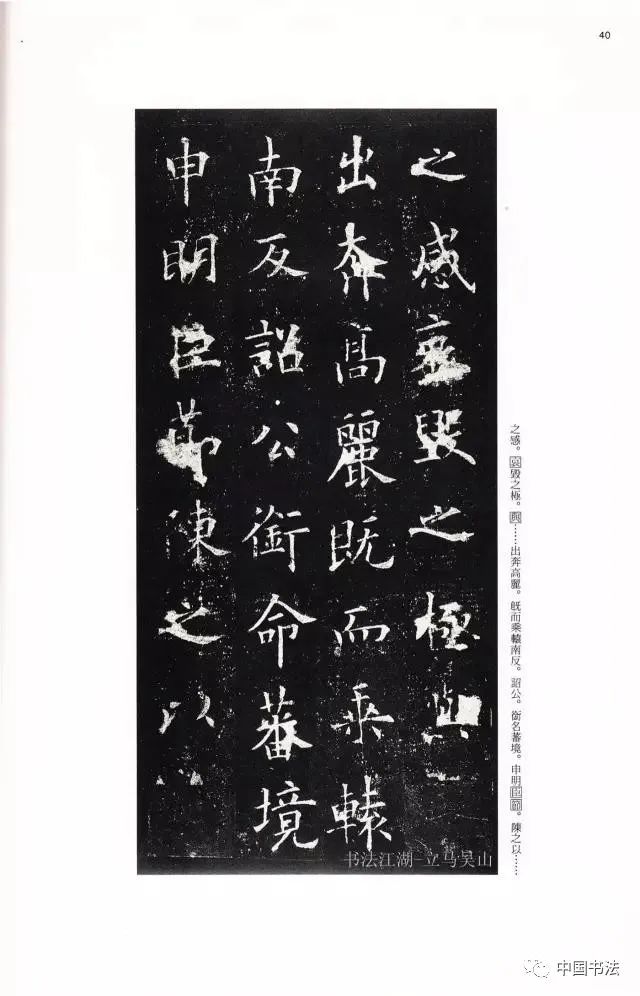 40
之感哀毀之極與
出奔高麗既而乘轅
南反詔公銜命蕃境
申明臣節陳之以
之感。哀毀之極。與……出奔高麗。既而乘轅南反。詔公。銜名蕃境。申明臣節。陳之以……
书法江湖-立马吴山
中国书法